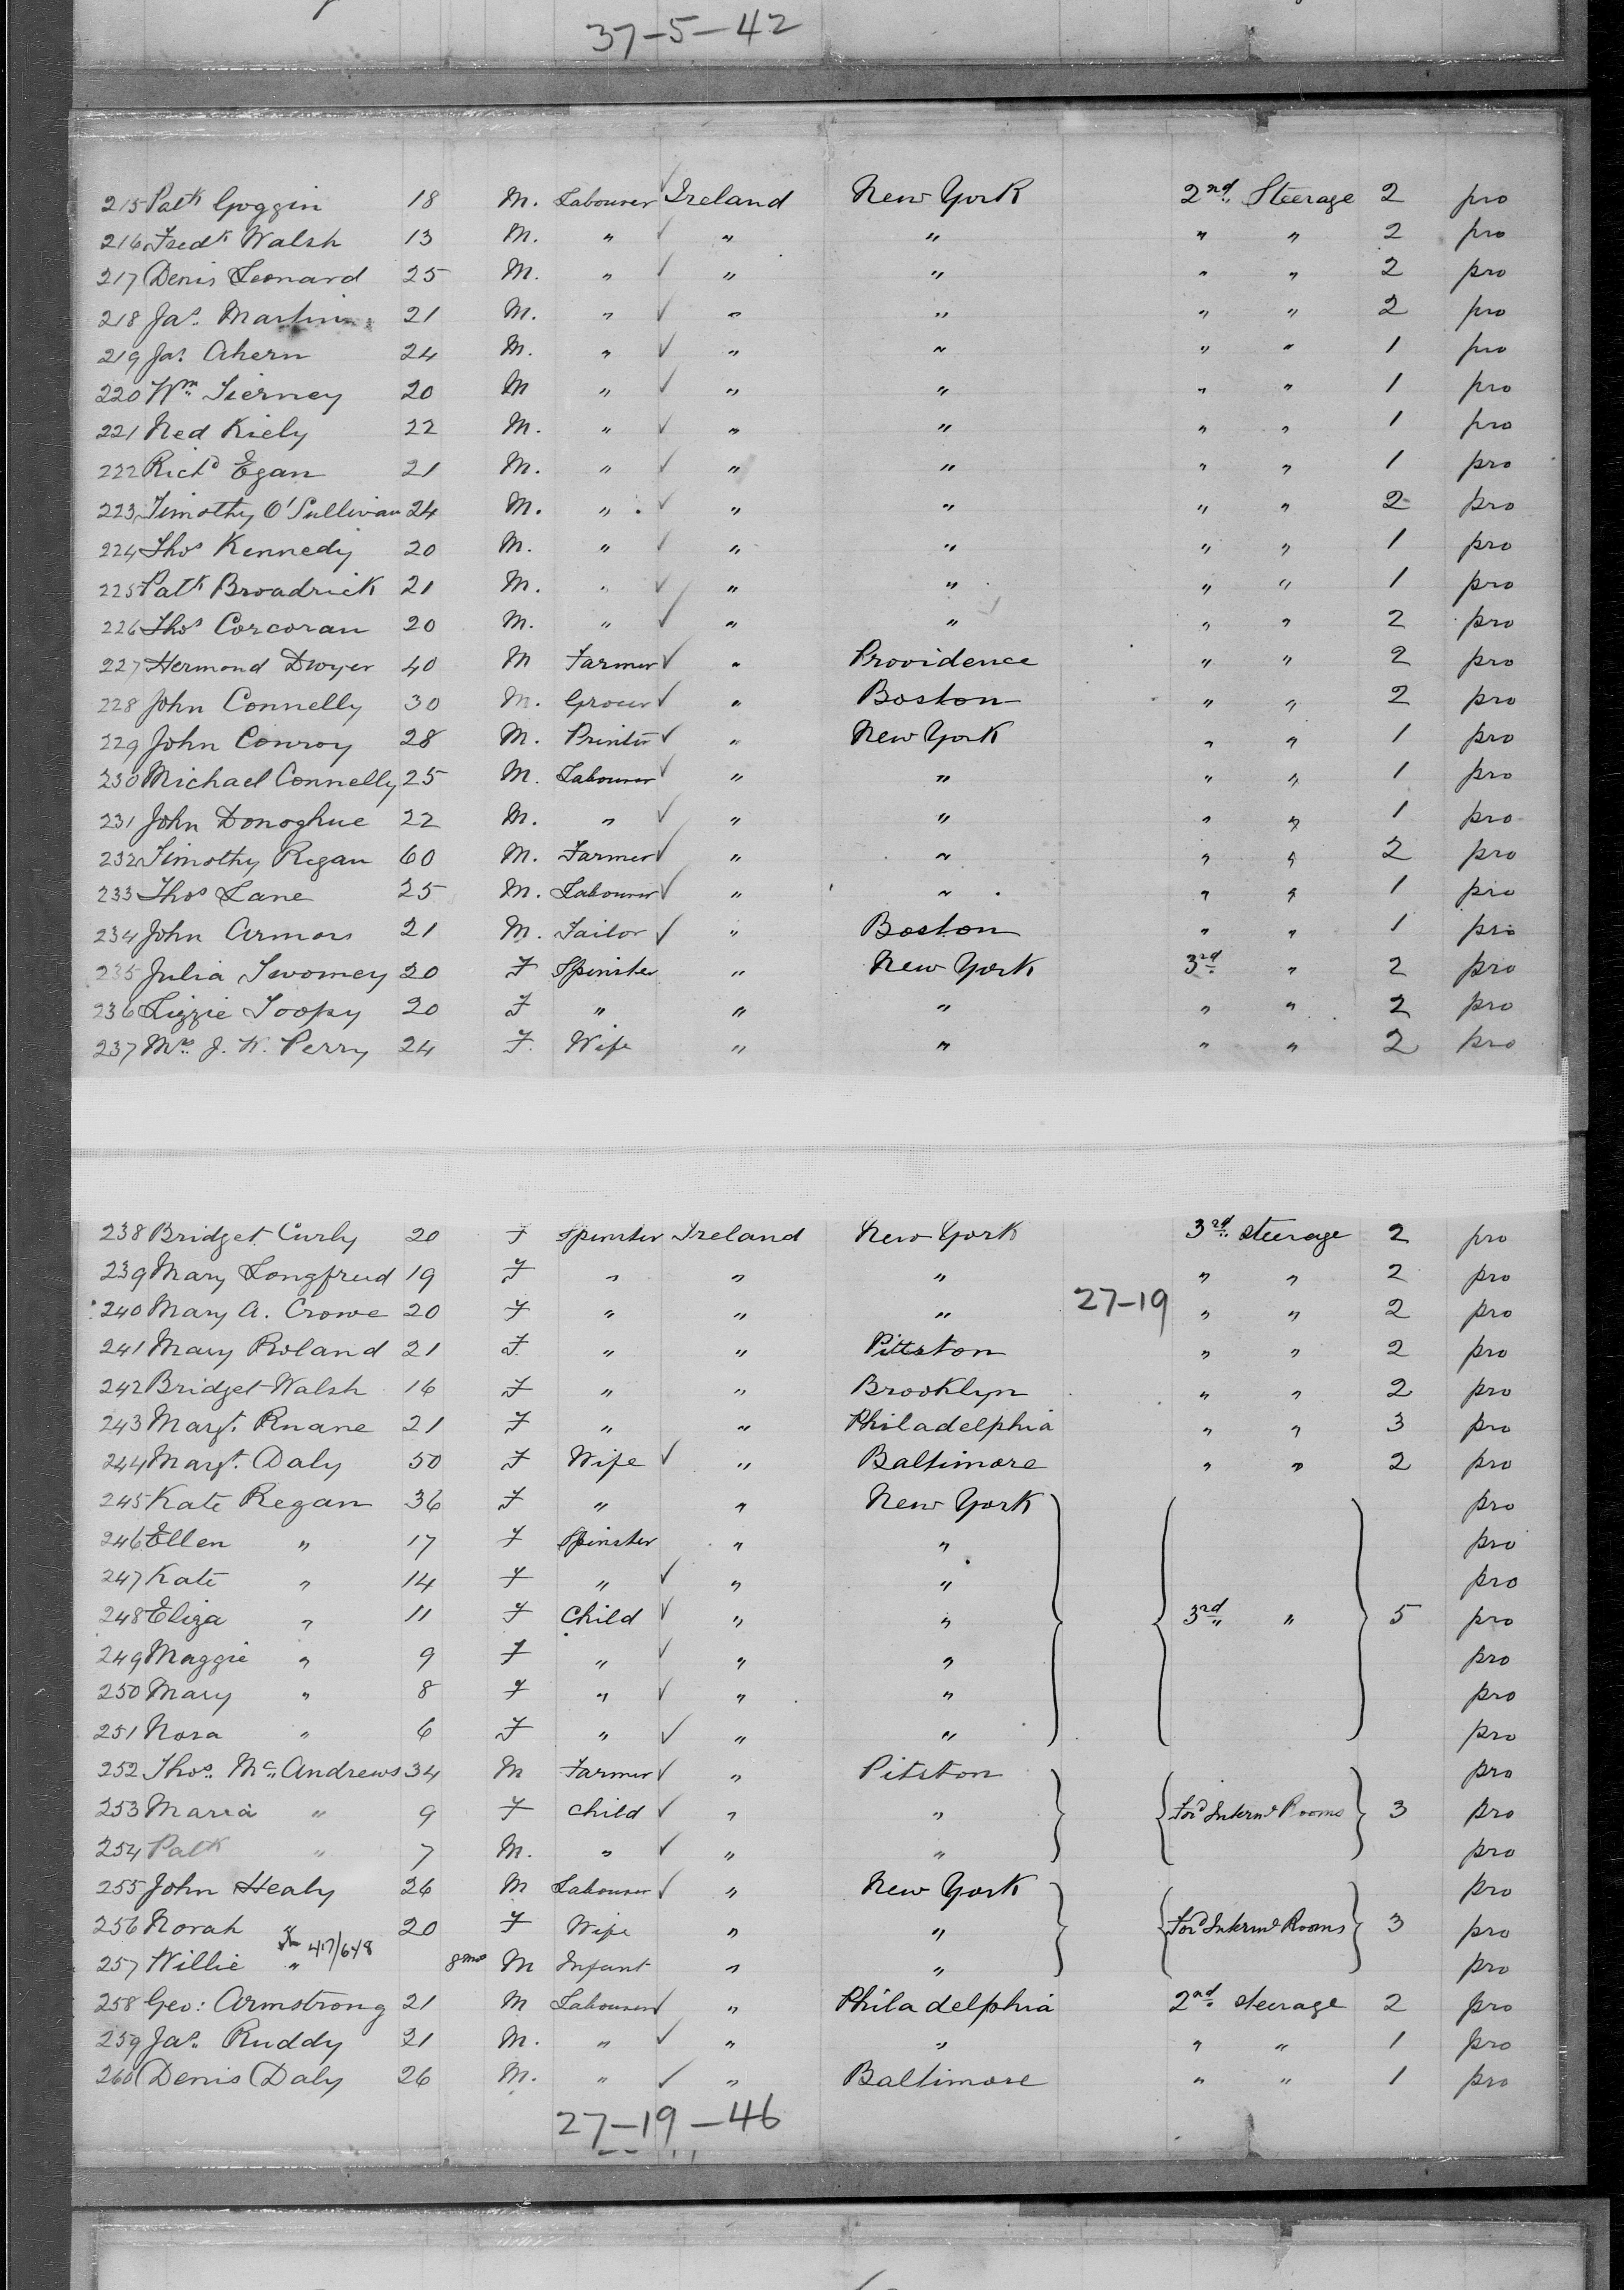 37-5-42
215 Patk Goggin 18 M. Labourer Ireland New York 2nd Steerage 2 pro
216 Fredk Walsh 13 M. " ✓ " " " " 2 pro
217 Denis Leonard 25 M. " ✓ " " " " 2 pro
218 Jas. Martin 21 M. " ✓ " " " " 2 pro
219 Jas. Ahern 24 M. " ✓ " " " " 1 pro
220 Wm Tierney 20 M " ✓ " " " " 1 pro
221 Ned Kiely 22 M. " ✓ " " " " 1 pro
222 Richd Egan 21 M. " ✓ " " " " 1 pro
223 Timothy O'Sullivan 24 M. " ✓ " " " " 2 pro
224 Thos Kennedy 20 M. " ✓ " " " " 1 pro
225 Patk Broadrick 21 M. " ✓ " " " " 1 pro
226 Thos Corcoran 20 M. " ✓ " " " " 2 pro
227 Hermond Dwyer 40 M Farmer ✓ " Providence " " 2 pro
228 John Connelly 30 M. Grocer ✓ " Boston " " 2 pro
229 John Conroy 28 M. Printer ✓ " New York " " 1 pro
230 Michael Connelly 25 M. Labourer ✓ " " " " 1 pro
231 John Donoghue 22 M. " ✓ " " " " 1 pro
232 Timothy Regan 60 M. Farmer ✓ " " " " 2 pro
233 Thos Lane 25 M. Labourer ✓ " " " " 1 pro
234 John Armors 21 M. Tailor ✓ " Boston " " 1 pro
235 Julia Twomey 20 F Spinster " New York 3rd " 2 pro
236 Lizzie Toopy 20 F " " " " " 2 pro
237 Mrs. J. W. Perry 24 F. Wife " " " " 2 pro
238 Bridget Curly 20 F Spinster Ireland New York 3rd steerage 2 pro
239 Mary Longfrud 19 F " " " " " 2 pro
240 Mary A. Crowe 20 F " " " 27-19 " " 2 pro
241 Mary Roland 21 F. " " Pittston " " 2 pro
242 Bridget Walsh 16 F " " Brooklyn " " 2 pro
243 Margt. Ruane 21 F " " Philadelphia " " 3 pro
244 Margt. Daly 50 F Wife ✓ " Baltimore " " 2 pro
245 Kate Regan 36 F " " New York pro
246 Ellen " 17 F Spinster " " pro
247 Kate " 14 F " ✓ " " pro
248 Eliza " 11 F Child ✓ " " 3rd " 5 pro
249 Maggie " 9 F " ✓ " " pro
250 Mary " 8 F " ✓ " " pro
251 Nora " 6 F " ✓ " " pro
252 Thos. Mc Andrews 34 M Farmer ✓ " Pitston pro
253 Maria " 9 F child ✓ " " Ford Intermd Rooms 3 pro
254 Patk " 7 M. " ✓ " " pro
255 John Healy 26 M Labourer ✓ " New York pro
256 Norah " 20 F Wife " " Ford Intermd Rooms 3 pro
417/648
257 Willie " 8mos M Infant " " pro
258 Geo: Armstrong 21 M Labourer ✓ " Philadelphia 2nd steerage 2 pro
259 Jas. Ruddy 21 M. " ✓ " " " " 1 pro
260 Denis Daly 26 M. " ✓ " Baltimore " " 1 pro
27-19-46